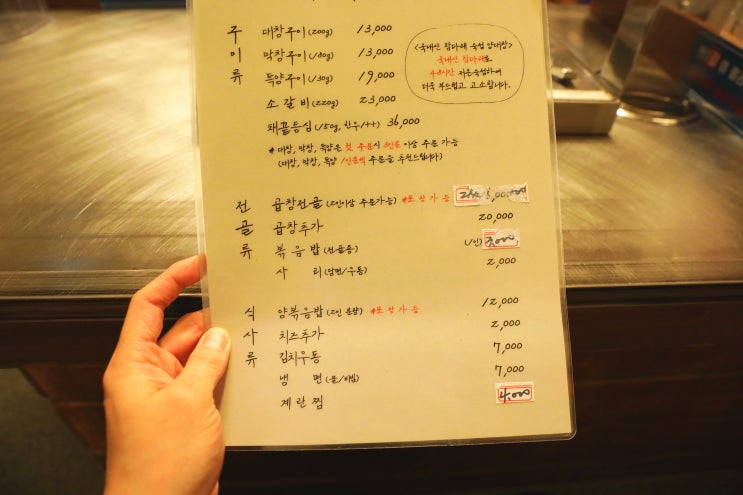 구
이
류
대창구이(200g) 13,000
막창구이(180g) 13,000
특양구이(130g) 19,000
소갈비(220g) 23,000
꽃등심(150g, 한우1++) 36,000
* 대창, 막창, 특양은 첫 주문시 3인분 이상 주문 가능
(대창, 막창, 특양 1인분씩 주문을 추천드립니다)
<국내산 참다래 숙성 양대창>
국내산 참다래로
48시간 저온숙성하여
더욱 부드럽고 고소합니다.
전
골
류
곱창전골(2인이상 주문가능) *포장가능
곱창추가 20,000
볶음밥(전골용) (1인) 3,000
사리(당면/우동) 2,000
식
사
류
양볶음밥(2인분량) *포장가능 12,000
치즈추가 2,000
김치우동 7,000
냉면(물/비빔) 7,000
계란찜 4,000